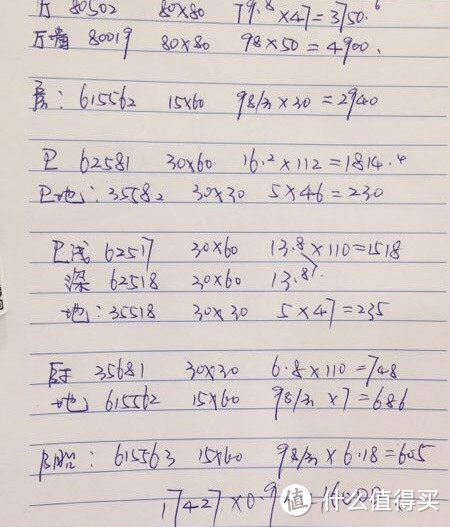 80502 80×80 79.8×47=3750.6
80019 80×80 98×50=4900.
615562 15×60 98/m×30=2940
62581 30×60 16.2×112=1814.4
地:35582 30×30 5×46=230
浅 62517 30×60 13.8×110=1518
深 62518 30×60 13.8
地:35518 30×30 5×47=235
厨 35681 30×30 6.8×110=748
地 615562 15×60 98/m×7=686
615563 15×60 98/m×6.18=605
17427×0.9
值 什么值得买